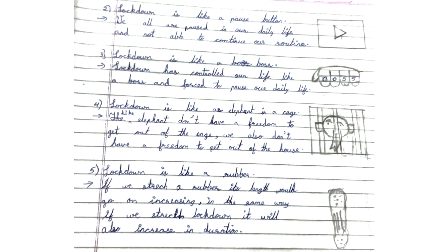 2) Lockdown is like a pause button.
→ We all are paused is our daily life
and not able to continue our routine.
3) Lockdown is like a boss.
→ Lockdown has controlled our life like
a boss and forced to pause our daily life.
BOSS
4) Lockdown is like as elephant in a cage
→ like elephant don't have a freedom to
get out of the cage, we also don't
have a freedom to get out of the house.
5) Lockdown is like a rubber.
→ If we strech a rubber its length
go on increasing, in the same way
If we strech lockdown it will
also increase in duration.